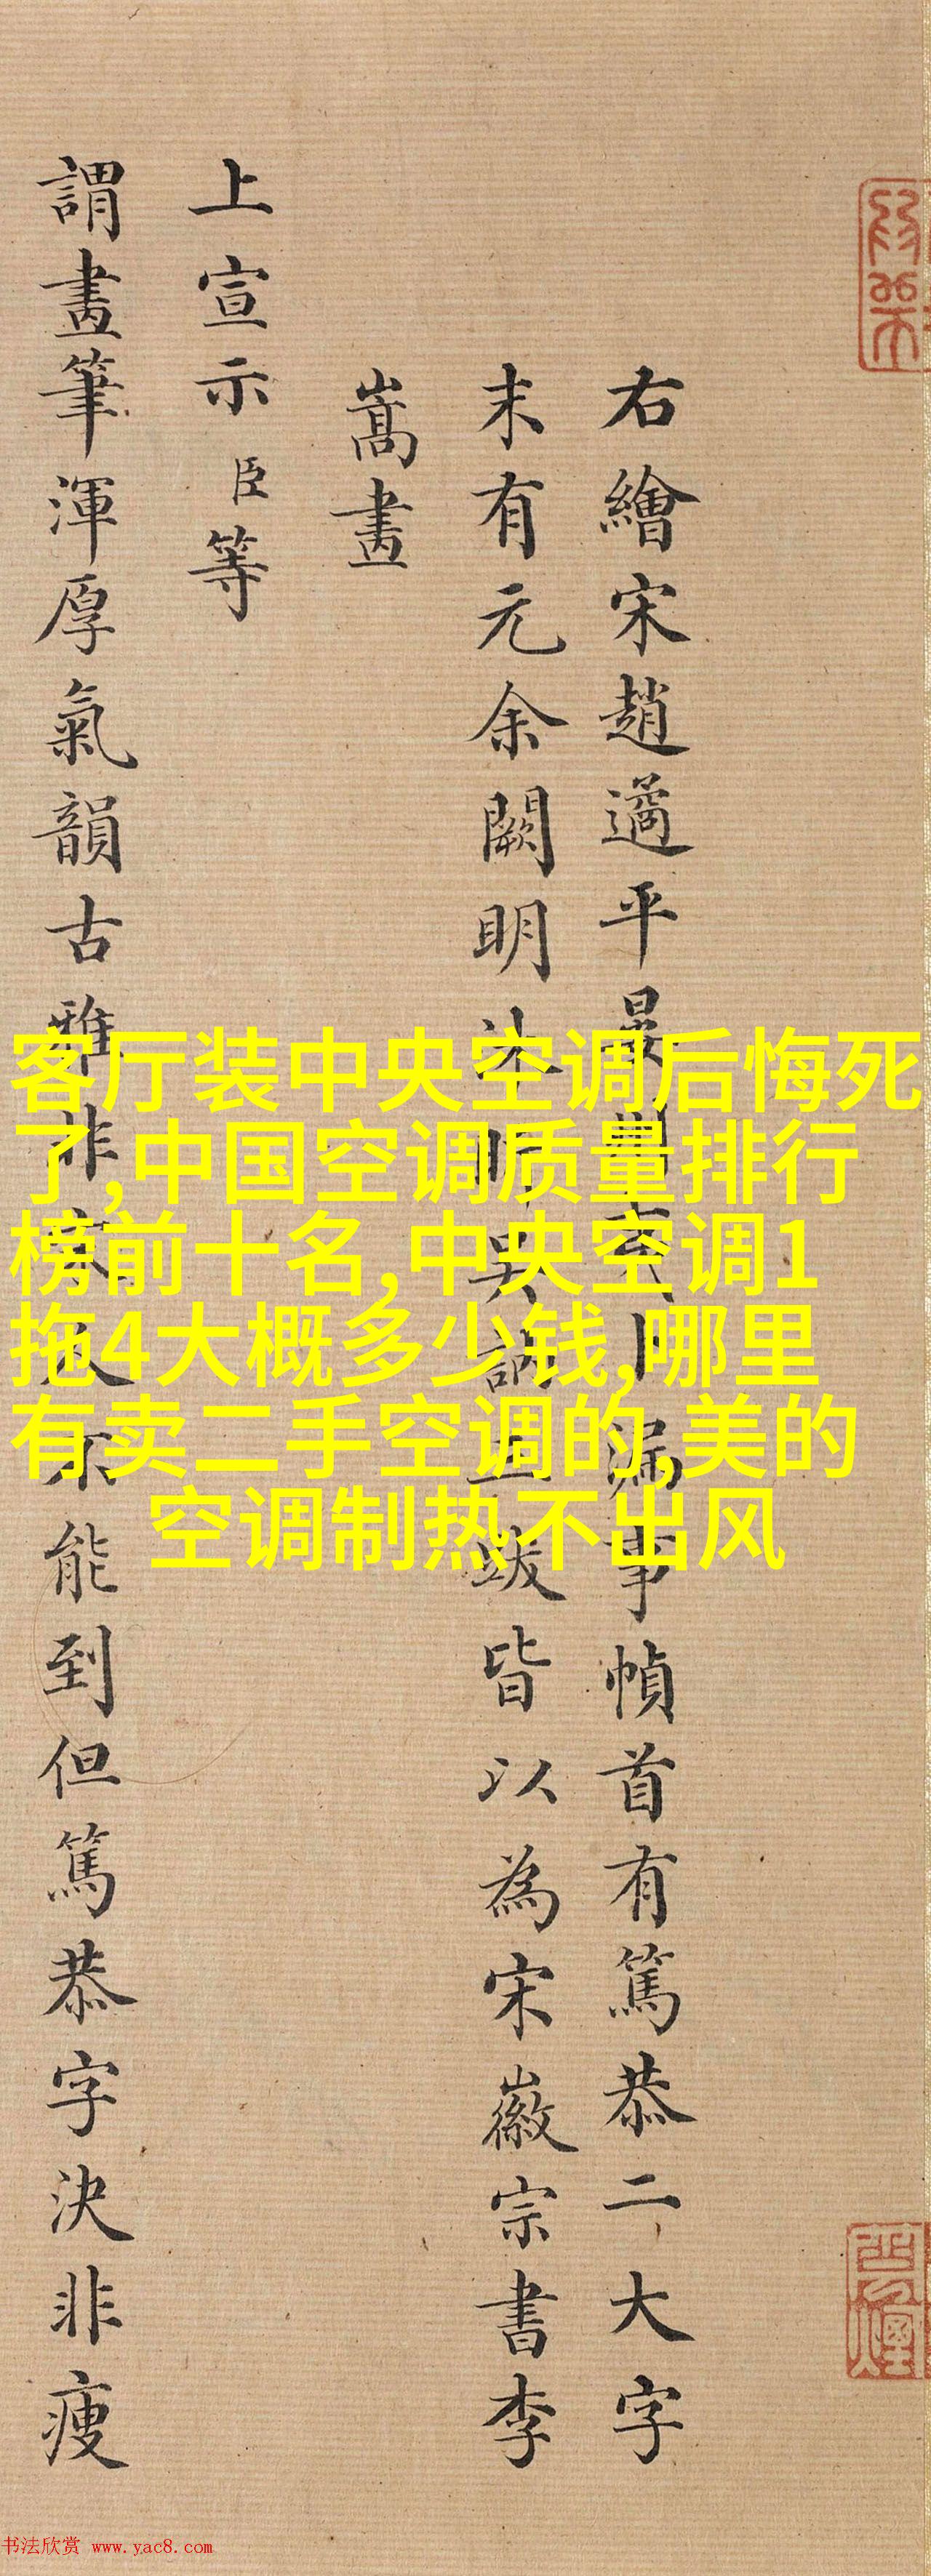 右繪宋趙遹平晏州夷卜漏事幀首有篤恭二大字
末有元余闕明沐昕吳訥五跋皆以為宋徽宗書李
嵩畫
上宣示臣等
謂畫筆渾厚氣韻古雅非宋人不能到但篤恭字決非瘦
客厅装中央空调后悔死
了,中国空调质量排行
榜前十名,中央空调1
拖4大概多少钱,哪里
有卖二手空调的,美的
空调制热不出风
书法欣赏 www.yac8.com